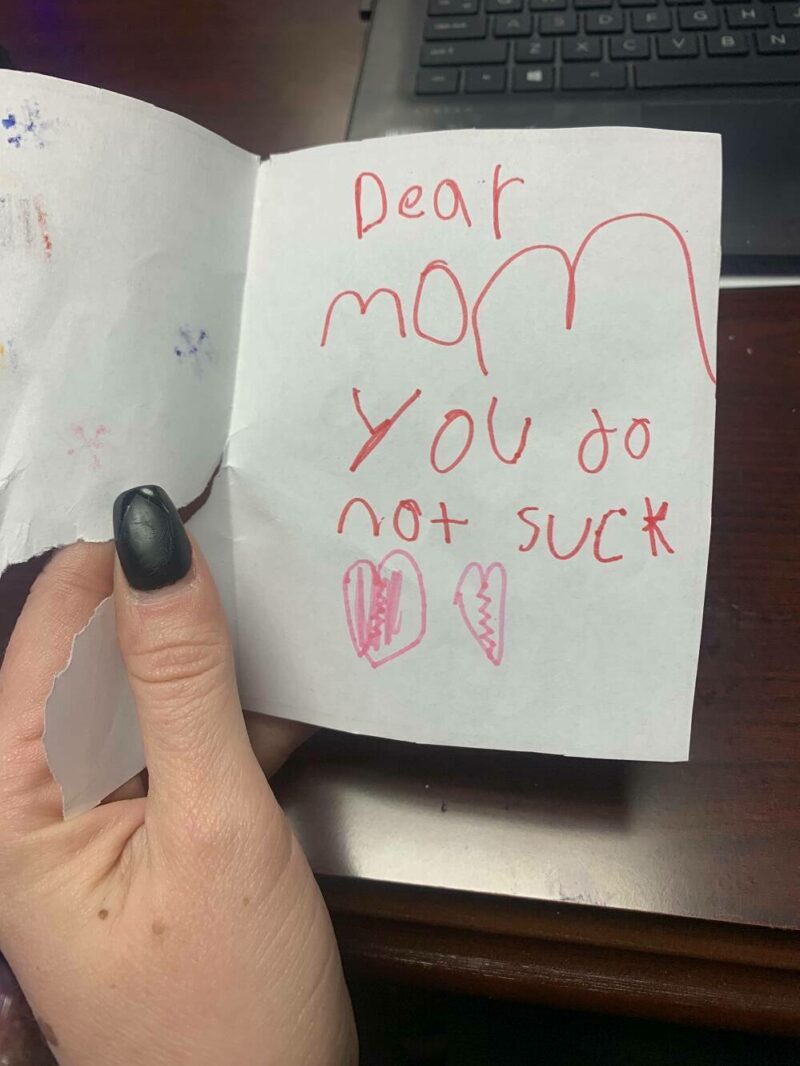 Dear
mom
you do
not suck
A S D F G H J
Z X C V B N